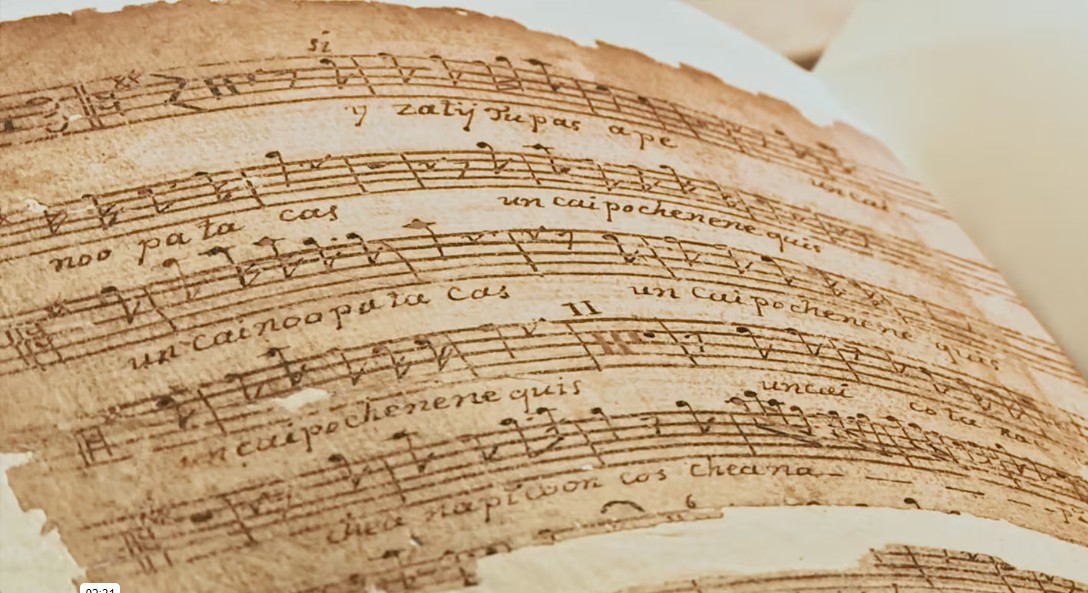 si
y zatij Tupas ape
uncai
noo pata cas un caipochenene quis
un cainoopata cas un caipochenene quis
II
uncaipochenene quis uncai
chea napicoon cos cheana
6
02:21